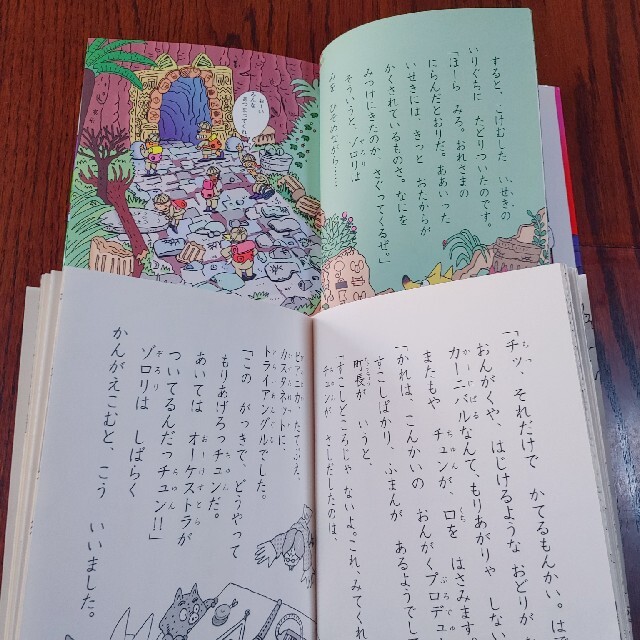 すると、こけむした いせきの
いりぐちに たどりついたのです。
「ほーら みろ。おれさまの
にらんだとおりだ。ああいった
いせきには、きっと おたからが
かくされているものさ。なにを
みつけにきたのか、さぐってくるぜ。」
そういうと、ゾロリは
ひそめながら……
おーい
みんな
あつまってくれ
「チッ、それだけで かてるもんかい。は
おんがくや、はじけるような おどりが
カーニバルなんて、もりあがりゃ しない
またもや チュンが、口を はさみます
「かれは、こんかいの おんがくプロデュ
すこしばかり、ふまんが あるようで
町長が いうと、
「すこしどころじゃ ないよ。これ、みてくれ
チュンが さしだしたのは、
カスタネットに、
トライアングルでした。
「この がっきで、どうやって
もりあげろっチュンだ。
あいては オーケストラが
ついてるんだっチュン!!」
ゾロリは しばらく
かんがえこむと、こう いいました。